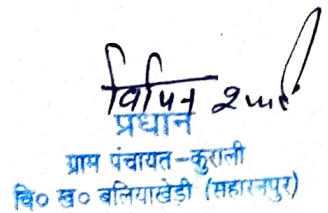 विपिन शर्मा
प्रधान
ग्राम पंचायत-कुराली
वि० ख० बलियाखेडी (सहारनपुर)